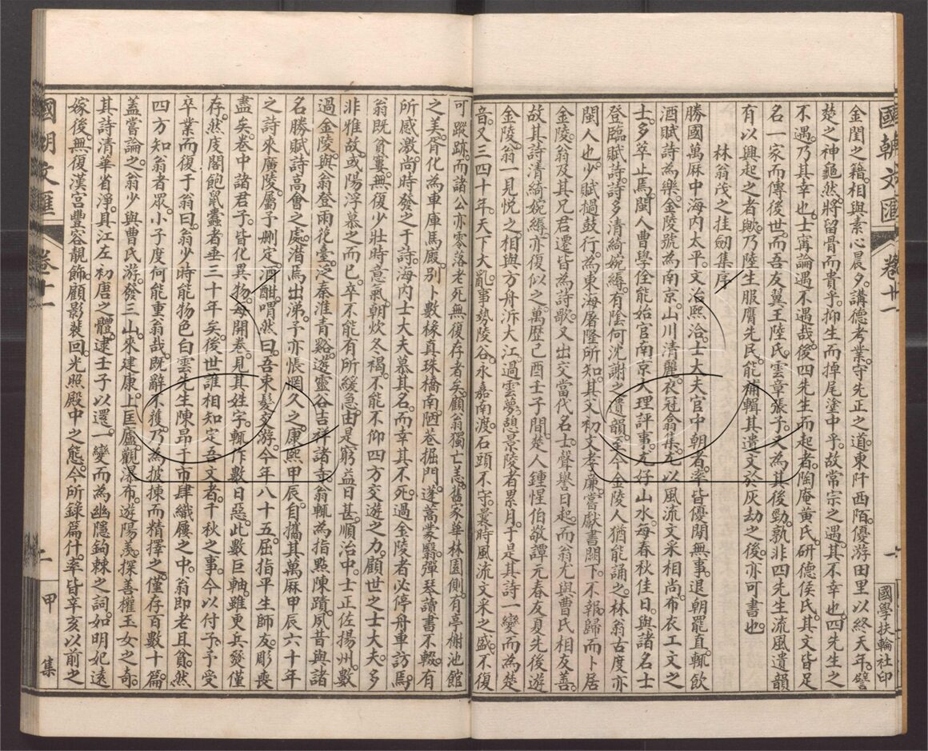 國朝文匯 卷十一 一 國學扶輪社印
金閶之藉相與素心晨夕講德考業守先正之道東阡西陌優游田里以終天年譬
楚之神龜然將留骨而貴乎抑生而掉尾塗中乎故常宗之遇其不幸也四先生之
不遇乃其幸也士寗論遇不遇哉後四先生而起者陶庵黃氏研德侯氏其文皆足
名一家而傳後世而吾友翼王陸氏雲章張子又為其後勁孰非四先生流風遺韻
有以興起之者歟乃陸生服膺先民能裒輯其遺文於灰劫之後亦可書也
林翁茂之挂劒集序
勝國萬厤中海內太平文治熙洽士大夫官中朝者率皆優閒無事退朝罷直輒飲
酒賦詩為樂金陵號為南京山川清麗衣冠翕集尤以風流文采相尚布衣工文之
士多萃止焉閩人曹學佺能始官南京大理評事尤好山水每春秋佳日與諸名士
登臨賦詩詩多清綺婉縟有陰何沈謝之遺韻至今金陵人猶能誦之林翁古度亦
閩人也少賦撾鼓行為東海屠隆所知其父初文孝廉嘗獻書闕下不報歸而卜居
金陵翁及其兄君遷皆為詩歌又出交當代名士聲譽日起而翁尤與曹氏相友善
故其詩清綺婉縟亦復似之萬厤己酉壬子間楚人鍾惺伯敬譚元春友夏先後遊
金陵翁一見悅之相與方舟泝大江過雲夢憩景陵者累月于是其詩一變而為楚
音又三四十年天下大亂事勢陵谷永嘉南渡石頭不守曩時風流文采之盛不復
可蹤跡而諸公亦零落老死無復存者矣顧翁獨亡恙舊家華林園側有亭榭池館
之美胥化為車庫馬廄別卜數椽真珠橋南陋巷掘門蓬蒿蒙翳彈琴讀書不輟有
所感激尚時發之于詩海內士大夫慕其名而幸其不死過金陵者必停舟車訪焉
翁既貧窶無復少壯時意氣朝炊冬褐不能不仰四方交遊之力顧世之士大夫多
非雅故或陽浮慕之而已卒不能有所緩急由是窮益日甚順治中士正佐揚州數
過金陵與翁登雨花臺泛秦淮青谿遊靈谷吉祥諸寺翁輒為指點陳蹟夙昔與諸
名勝賦詩高會之處潸焉出涕予亦悵惘久之康熙甲辰自攜其萬厤甲辰六十年
之詩來廣陵屬予刪定酒酣喟然曰吾束髮交游今年八十五屈指平生師友彫喪
盡矣卷中諸君子皆化異物每開卷見其姓字輒作數日惡此數巨軸雖更兵燹僅
存然庋閣飽鼠蠹者垂三十年矣後世誰相知定吾文者千秋之事今以付子予受
卒業而復于翁曰翁少時能物色白雲先生陳昂于市肆織屨之中翁即老且貧然
四方知翁者眾小子度何能重翁哉既辭不獲乃為披揀而精擇之僅存百數十篇
蓋嘗論之翁少與曹氏游發三山來建康上匡廬觀瀑布遊陽羨探善權玉女之奇
其詩清華省淨具江左初唐之體逮壬子以還一變而為幽隱鉤棘之詞如明妃遠
嫁後無復漢宮豐容靚飾顧影裴回光照殿中之態今所錄篇什率皆辛亥以前之
國朝文匯 卷十一 二 甲集